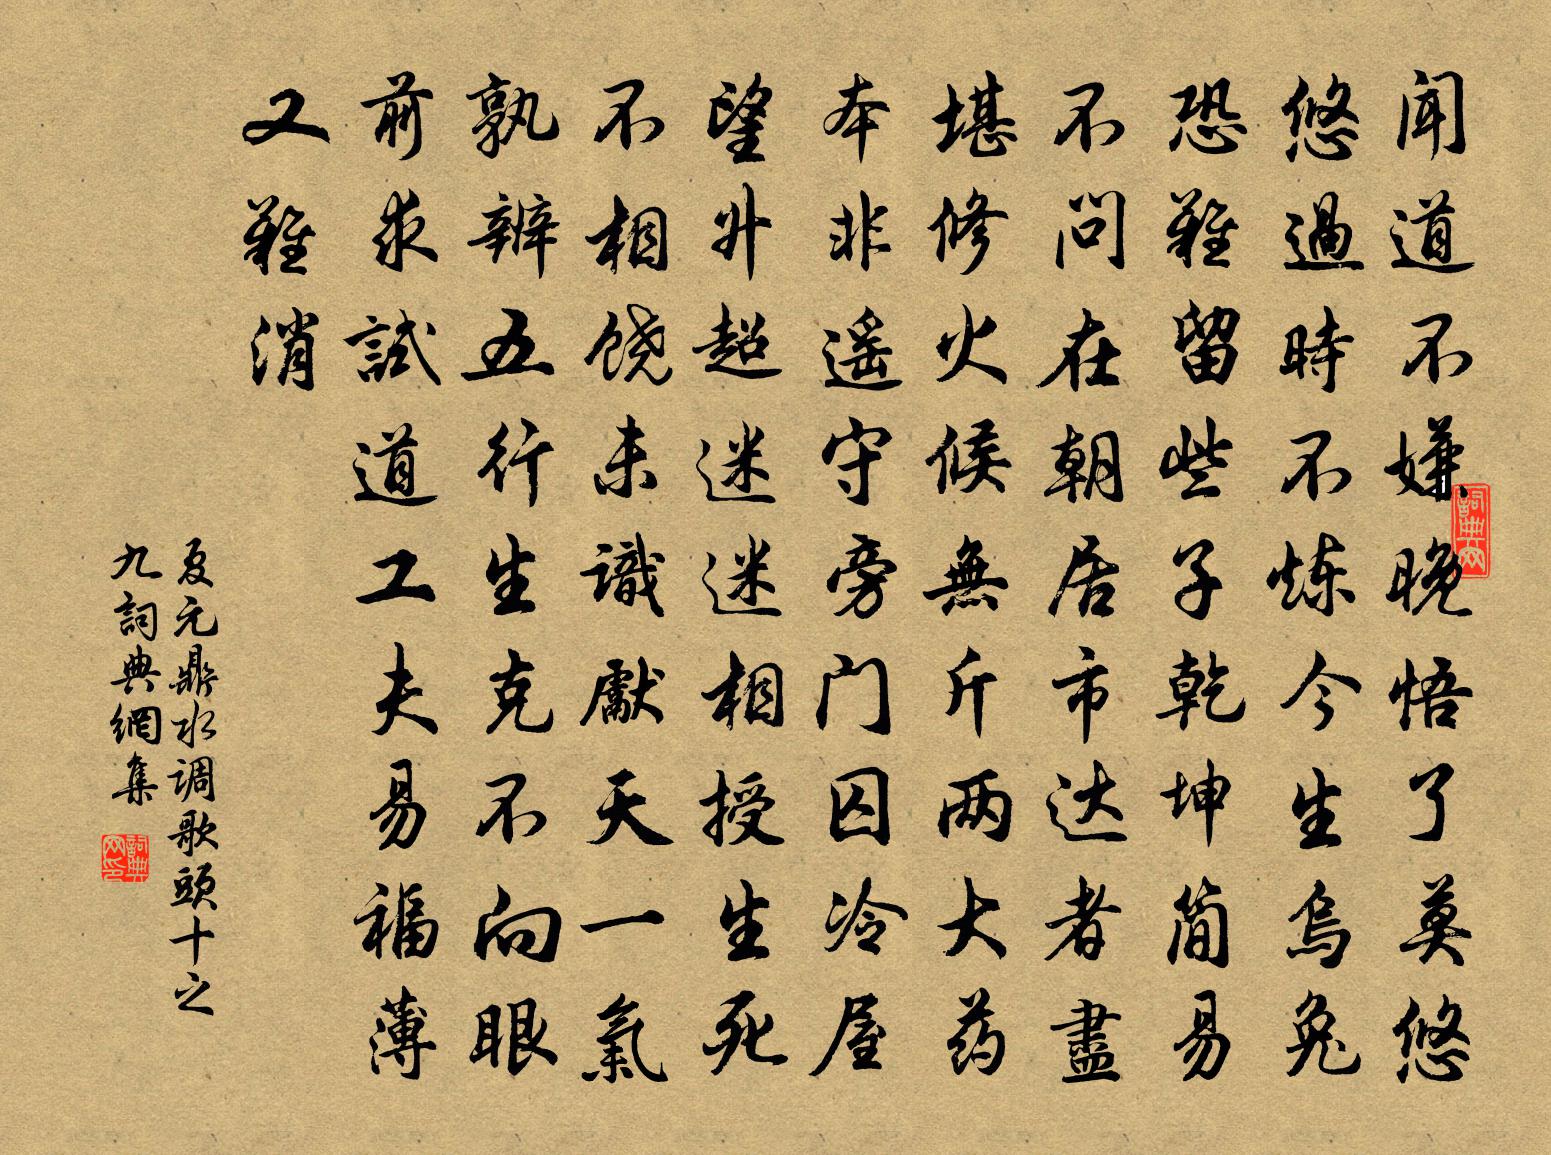 闻道不嫌晚悟了莫悠
悠過時不炼今生烏兔
恐難留些子乾坤简易
不问在朝居市达者盡
堪修火候無斤两大药
本非遥守旁门囚冷屋
望升超迷迷相授生死
不相饶未識獻天一氣
孰辨五行生克不向眼
前求試道工夫易福薄
又難消
夏元鼎水调歌頭十之
九詞典網集
詞典网
詞典网印